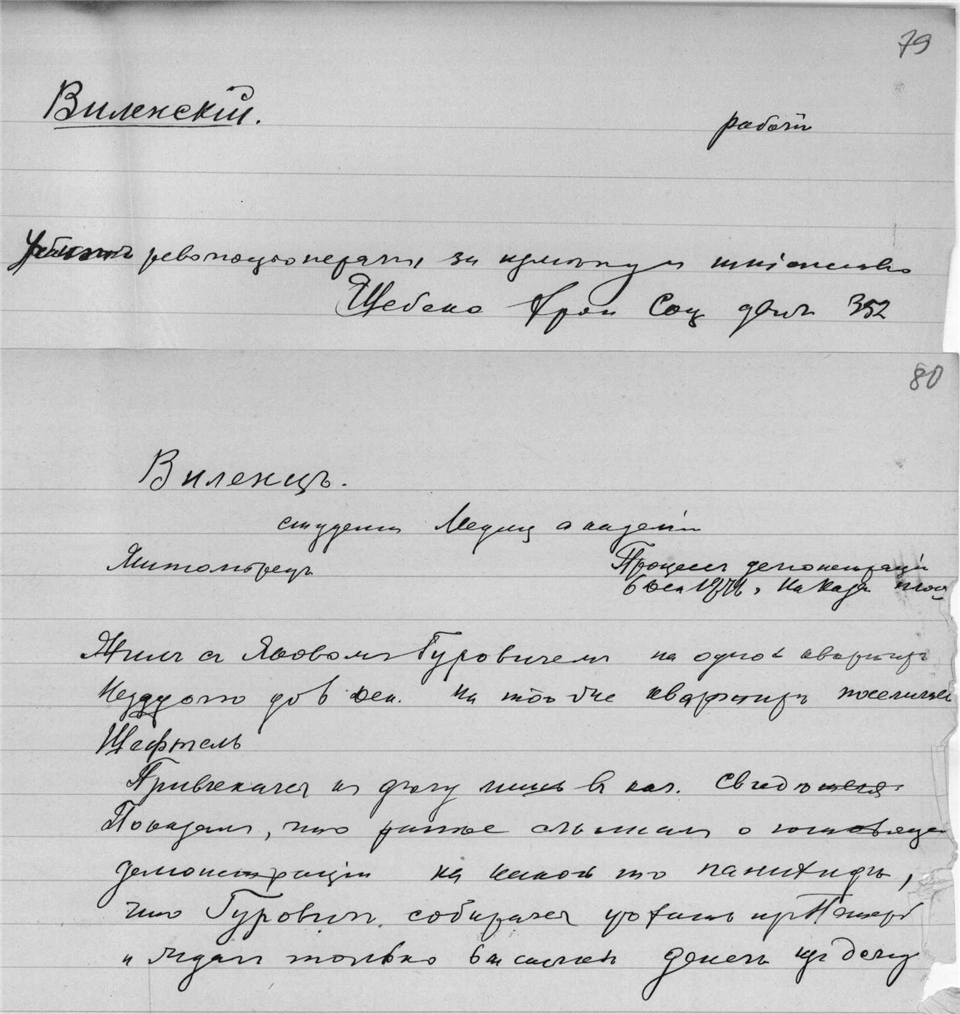 79
Виленскій.
рабочій
революціонерами, за измѣну и шпіонство
Щебеко Хрон Соц движ 352
80
Виленецъ.
студентъ Медиц академіи
Житомірецъ
Процессъ демонстраціи
6 дек 1876, на Каза площ
Жилъ съ Яковомъ Гуровичемъ на одной квартирѣ
Незадолго до 6 дек. на той же квартирѣ поселился
Шефтель
Привлекался къ дѣлу лишь въ кач. свидѣтеля
Показалъ, что ранѣе слышалъ о готовящейся
демонстраціи на какой то панихидѣ,
что Гуровичъ собирался уѣхать изъ Петерб
и ждалъ только высылки денегъ изъ дому